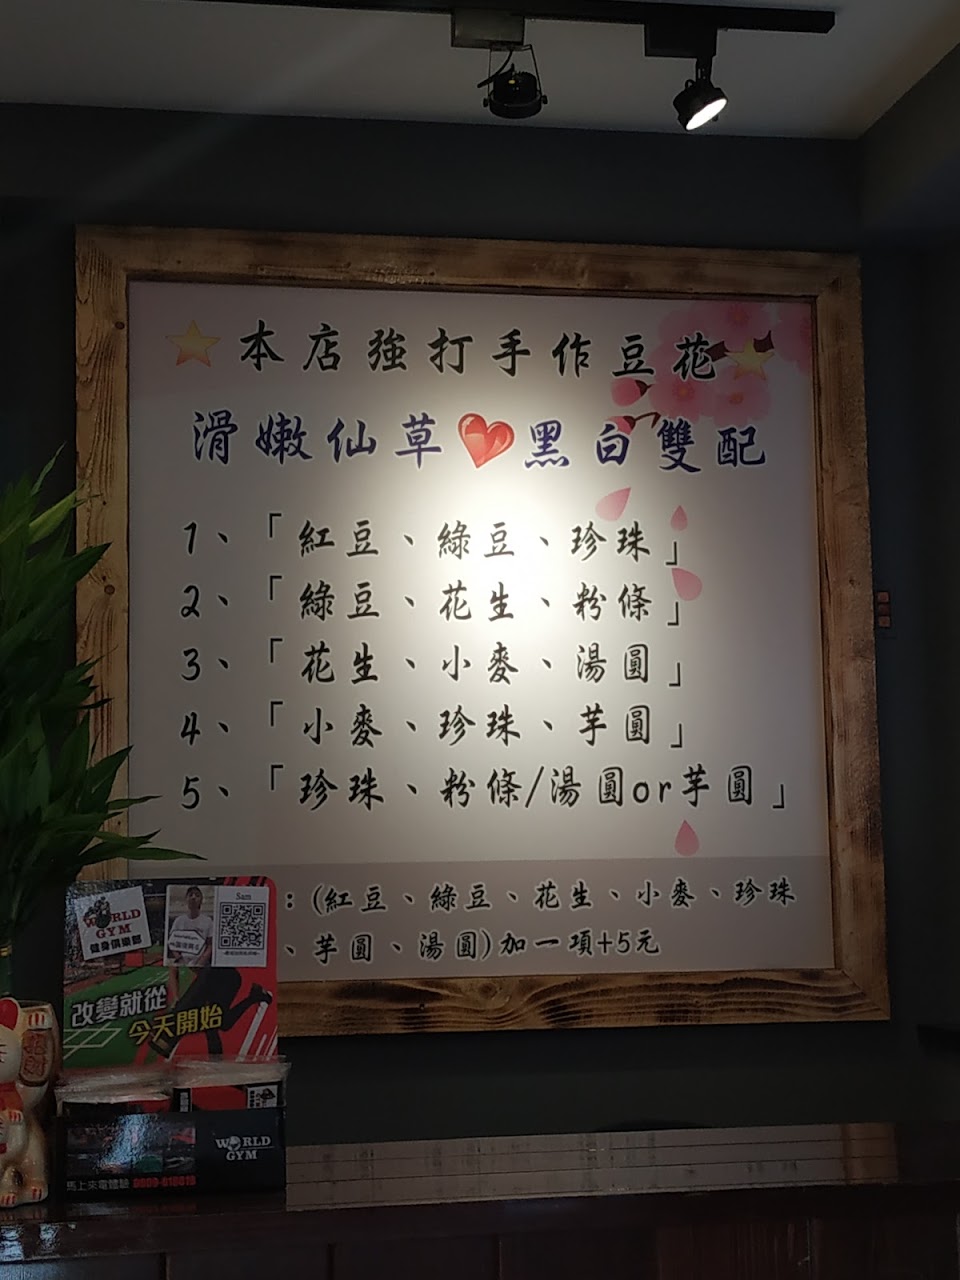 本店強打手作豆花
滑嫩仙草❤黑白雙配
1、「紅豆、綠豆、珍珠」
2、「綠豆、花生、粉條」
3、「花生、小麥、湯圓」
4、「小麥、珍珠、芋圓」
5、「珍珠、粉條/湯圓or芋圓」
:(紅豆、綠豆、花生、小麥、珍珠
、芋圓、湯圓)加一項+5元
WORLD
GYM
健身俱樂部
Sam
改變就從
今天開始
WORLD
GYM
馬上來電體驗 0809-818018